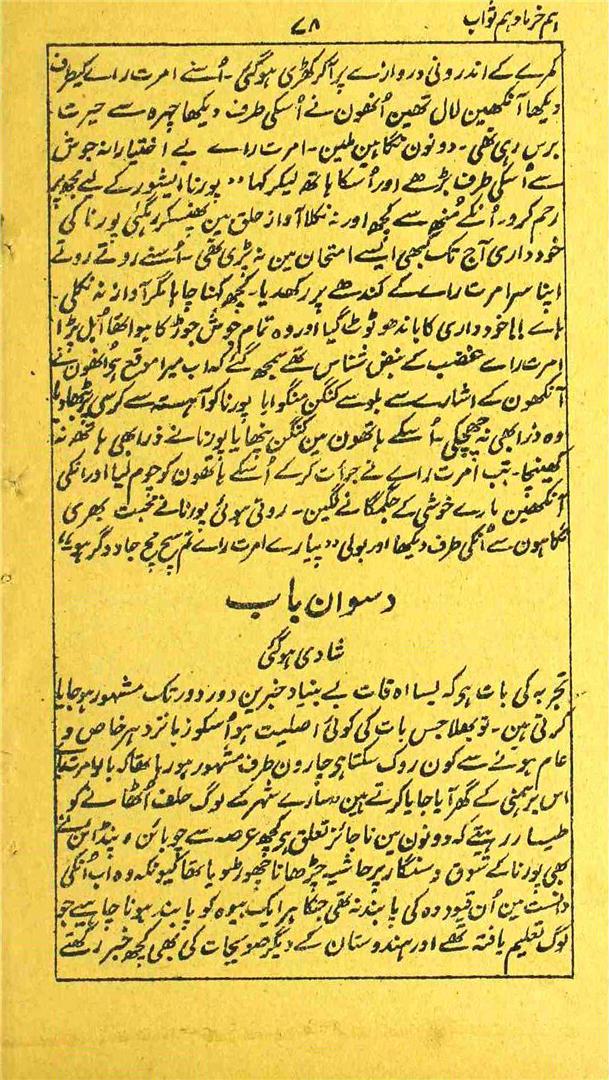 ہم خرما و ہم ثواب
۷۸
کمرے کے اندرونی دروازے پر آکر کھڑی ہوگئی۔ اُسنے امرت راے کیطرف
دیکھا آنکھین لال تھین اُنھون نے اُسکی طرف دیکھا چہرہ سے حیرت
برس رہی تھی۔ دونون نگاہین ملین۔ امرت راے بے اختیارانہ جوش
سے اُسکی طرف بڑھے اور اُسکا ہاتھ لیکر کہا “پورنا ایشور کے لیے مجھپر
رحم کرو۔ اُنکے مُنھ سے کچھ اور نہ نکلا آواز حلق مین پھنسکر رہگئی پورنا کی
خودداری آج تک کبھی ایسے امتحان مین نہ پڑی تھی۔ اُسنے روتے روتے
اپنا سر امرت راے کے کندھے پر رکھدیا۔ کچھ کہنا چاہا مگر آواز نہ نکلی۔
ہاے!! خودداری کا باندھ ٹوٹ گیا اور وہ تمام جوش جو رُکا ہوا تھا اُبل پڑا
امرت راے غضب کے نبض شناس تھے سمجھ گئے کہ اب میرا موقع ہے اُنھون نے
آنکھون کے اشارے سے بلو سے کنگن منگوایا پورنا کو آہستہ سے کرسی پر بٹھا دیا
وہ ذرا بھی نہ جھجکی۔ اُسکے ہاتھون مین کنگن پنھایا پورنا نے ذرا بھی ہاتھ نہ
کھینچا۔ تب امرت راے نے جرأت کرکے اُسکے ہاتھون کو چوم لیا اور اُنکی
آنکھین مارے خوشی کے جگمگانے لگین۔ روتی ہوئی پورنا نے محبت بھری
نگاہون سے اُنکی طرف دیکھا اور بولی “پیارے امرت راے تم سچ مچ جادوگر ہو”
دسوان باب
شادی ہوگئی
تجربہ کی بات ہے کہ بسا اوقات بے بنیاد خبرین دور دور تک مشہور ہوجایا
کرتی ہین۔ تو بھلا جس بات کی کوئی اصلیت ہو اُسکو زبانزد ہر خاص و
عام ہونے سے کون روک سکتا ہے چارون طرف مشہور ہو رہا تھا کہ بابو امرت راے
اس برہمنی کے گھر آیا جایا کرتے ہین۔ سارے شہر کے لوگ حلف اُٹھانے کو
طیار رہتے کہ دونون مین ناجائز تعلق ہے کچھ عرصہ سے چوبائن و پنڈائن نے
بھی پورنا کے شوق و سنگار پر حاشیہ چڑھانا چھوڑ دیا تھا کیونکہ وہ اب اُنکی
دانست مین اُن قیود کی پابند نہ تھی جنکا ہر ایک بیوہ کو پابند ہونا چاہیے جو
لوگ تعلیم یافتہ تھے اور ہندوستان کے دیگر صوبجات کی بھی کچھ خبر رکھتے